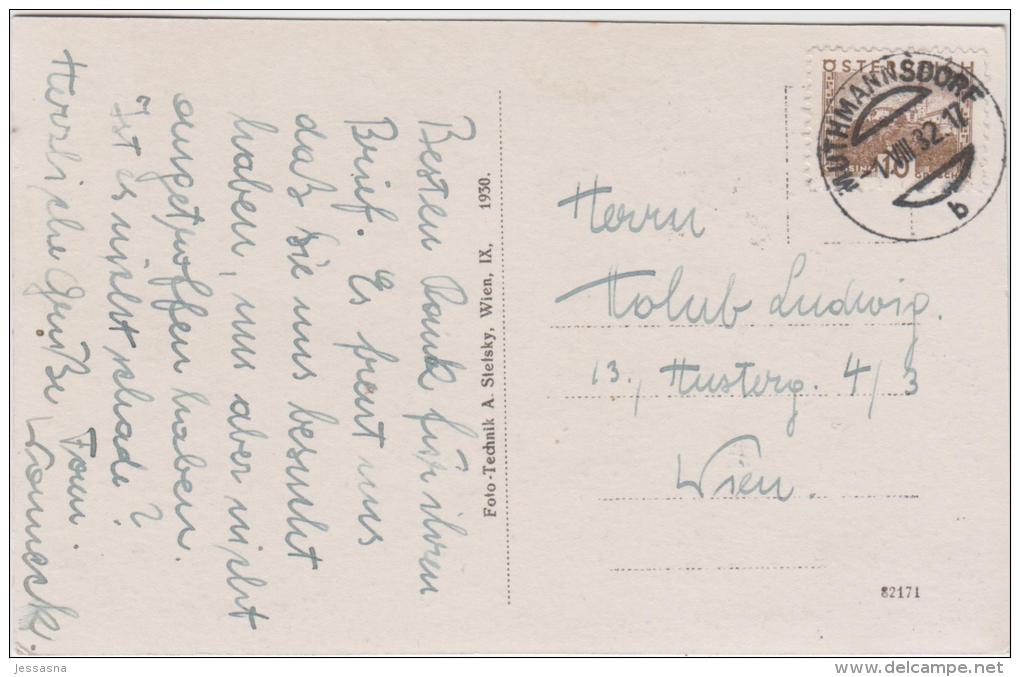 Besten Dank für ihren
Brief. Es freut uns
daß Sie uns besucht
haben, uns aber nicht
angetroffen haben.
Ist es nicht schade?
Herzliche Grüße
Foto-Technik A. Stefsky, Wien, IX, 1930.
ÖSTERREICH
WUTHMANNSDORF
VIII 32
b
Herrn
Holub Ludwig.
13., Husterg. 4/3
Wien.
82171
jessasna
www.delcampe.net